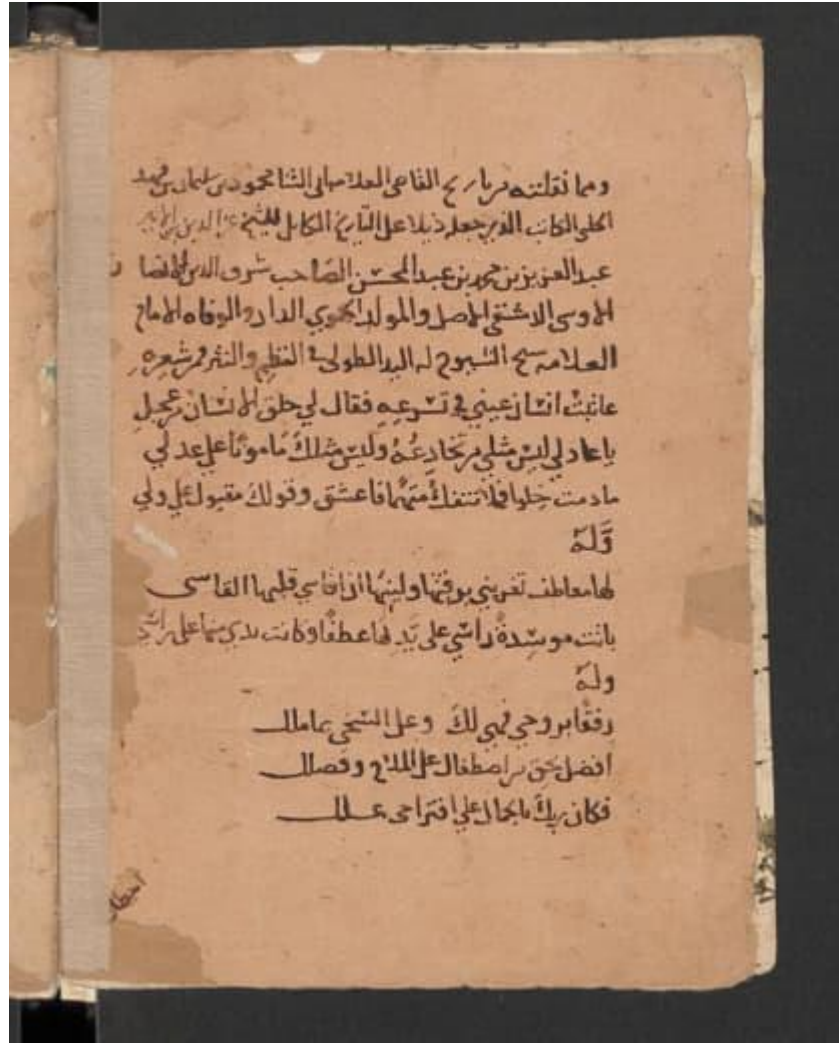 ومما نقلته من تاريخ القاضي العلامة ابي الثنا محمود بن سليمان بن فهد
الحلبي الكاتب الذي جعله ذيلا على التاريخ الكامل للشيخ عز الدين بن الاثير
عبد العزيز بن محمد بن عبد المحسن الصاحب شرف الدين الانصا
الاوسي الدمشقي الاصل والمولد الحموي الدار والوفاه الامام
العلامه شيخ الشيوخ له اليد الطولى في النظم والنثر فمن شعره
عاتبت انسان عيني في تسرعه فقال لي خلق الانسان من عجل
يا عاذلي ليس مثلي من تخادعه وليس مثلك مامونا على عذلي
مادمت خلوا فلا تنفك متهما فاعشق وقولك مقبول علي ولي
وله
لها معاطف تغريني برقتها ولينها ان اقاسي قلبها القاسي
باتت موسدة راسي على يد لها عطفا وكانت يدي منها على راسي
وله
رفقا بروحي فهي لك وعلى الشحي بما ملك
افضل بحق من اصطفاك على الملاح وفضلك
فكان ربك بالجمال على اقتراحي عدلك